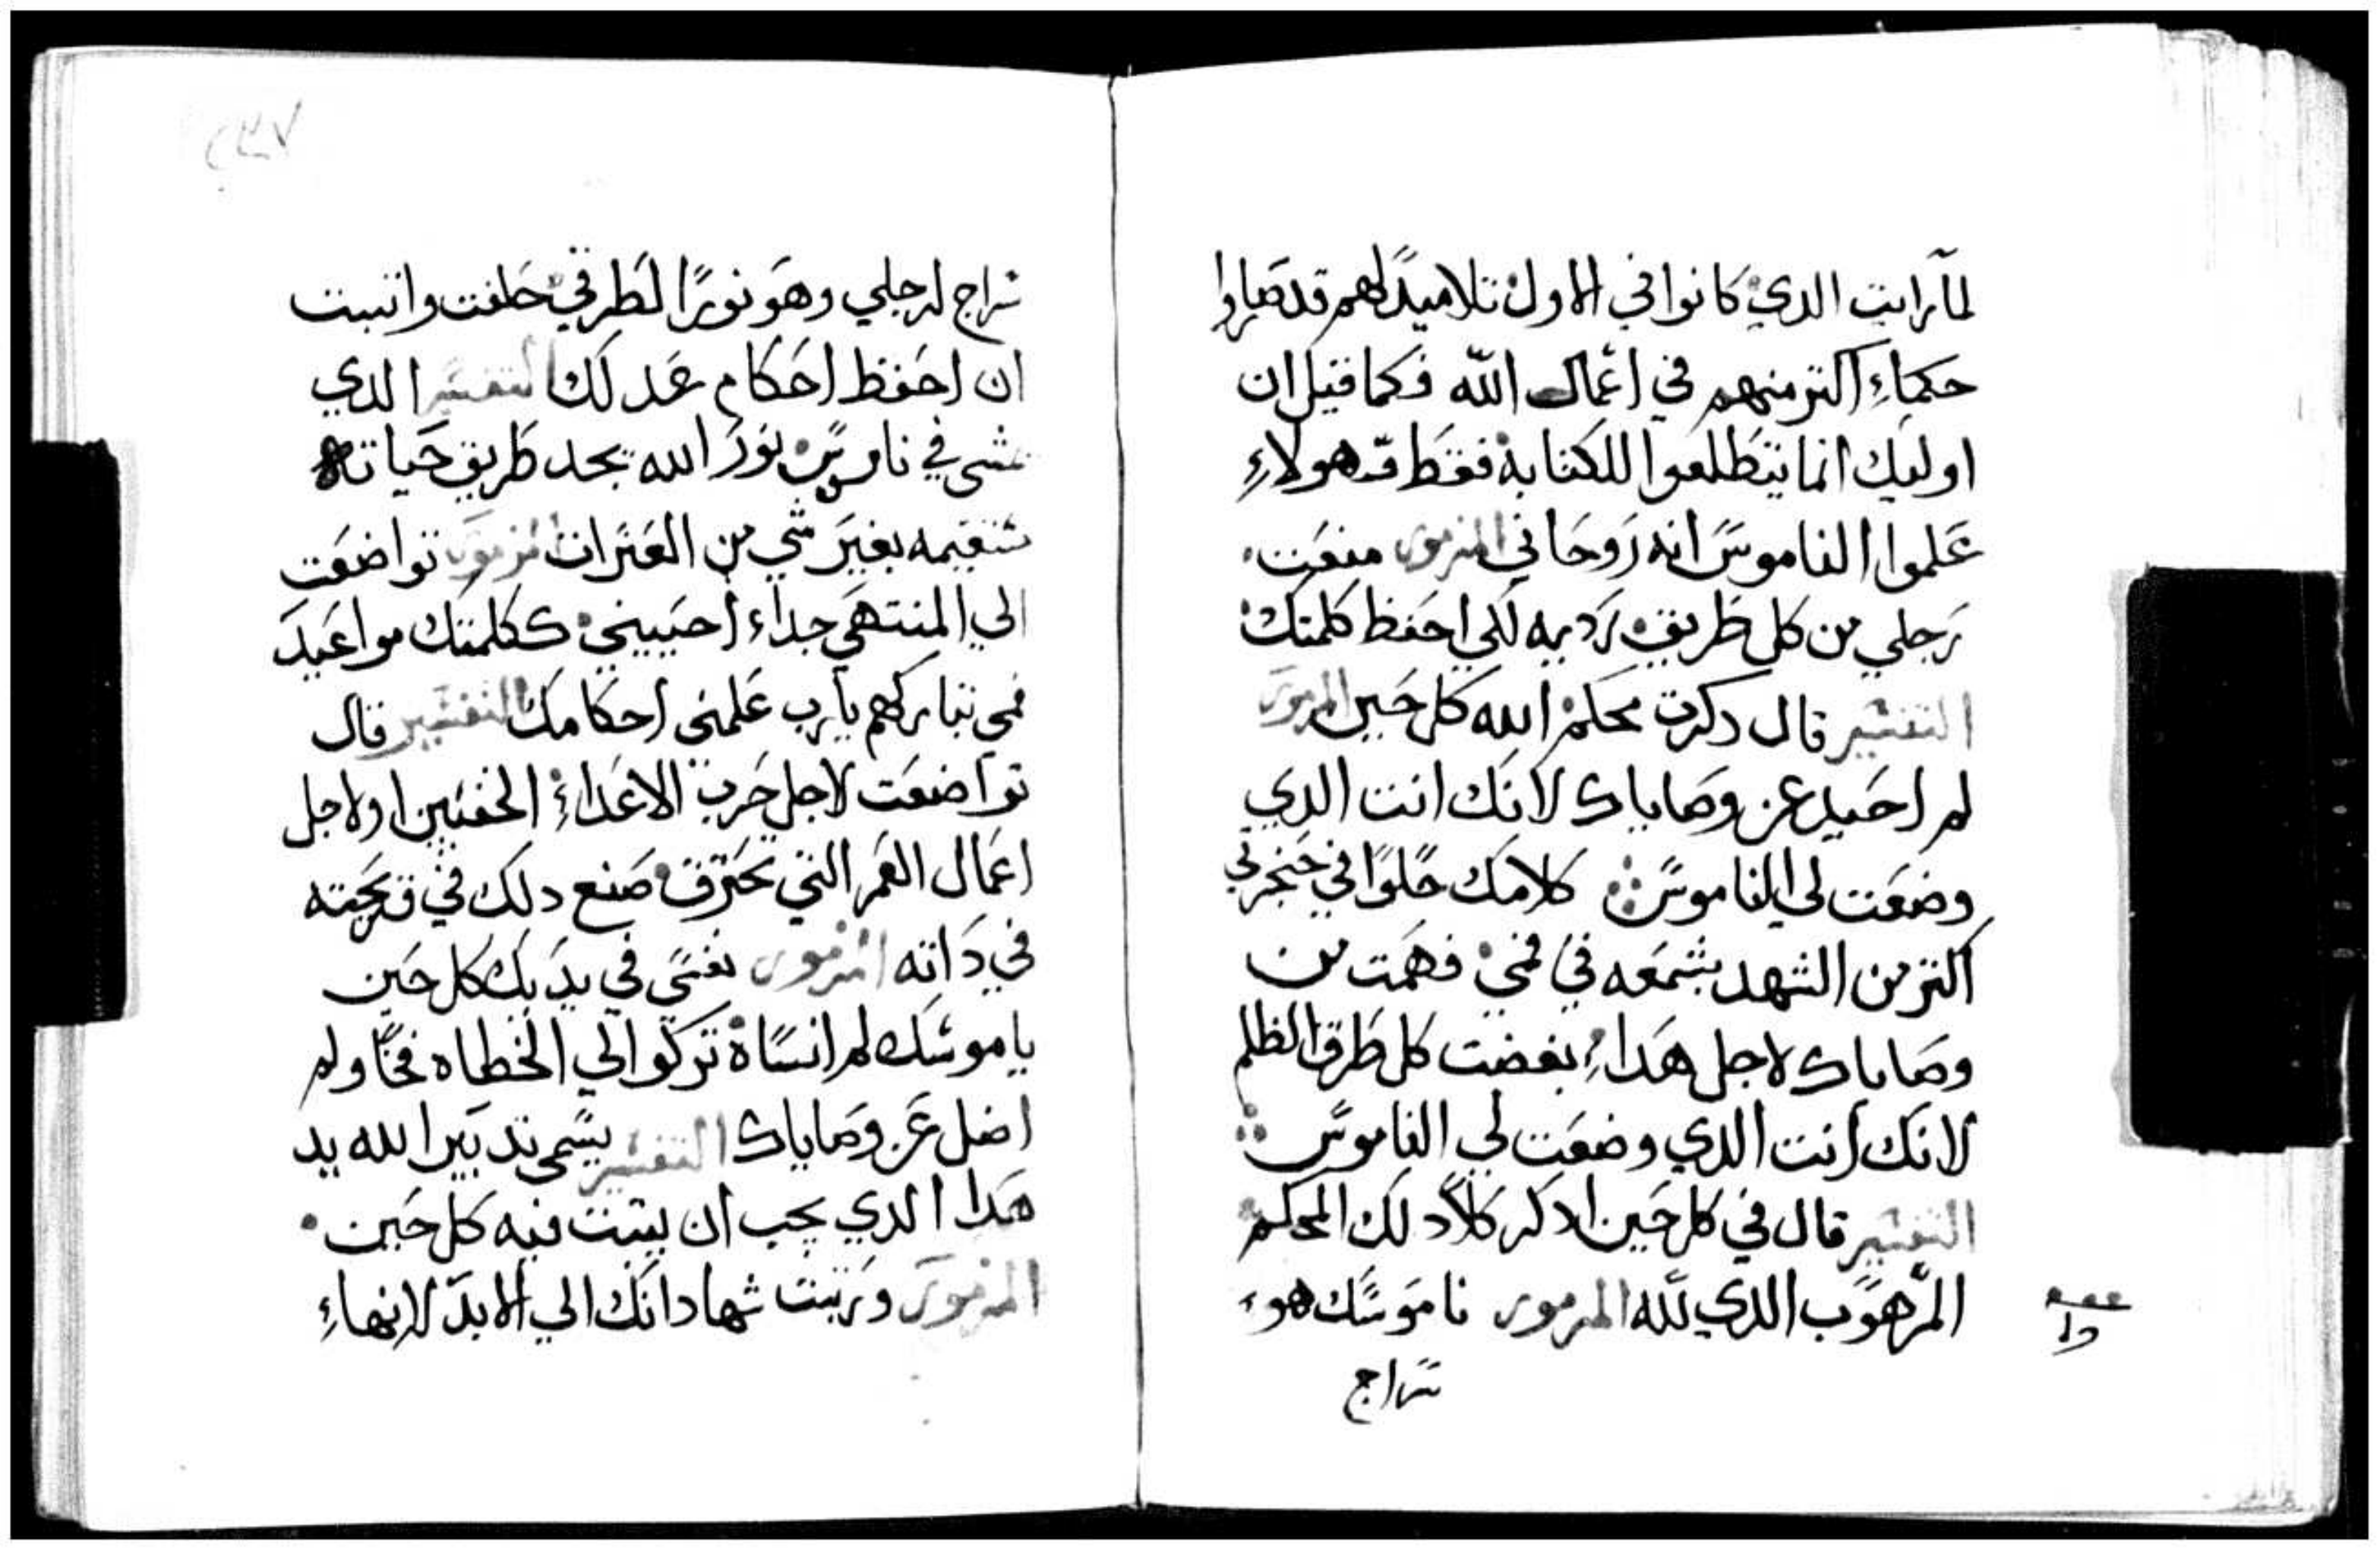 لما رايت الدي كانوا في الاول تلاميدًا لهم قد صاروا
حكماءِ اكتر منهم في اعمال الله فكما قيل ان
اوليك انما يتطلعوا للكتابة فقط فهولاءِ
علموا الناموس انه روحاني المزمور منعت
رجلي من كل طريق رديه لكي احفظ كلمتك
التفسير قال دكرت محكمة الله كل حين المزمور
لم احيد عن وصاياك لانك انت الدي
وضعت لي الناموس كلامك حلوًا في حنجرتي
اكتر من الشهد بشمعه في فمي فهمت من
وصاياك لاجل هدا بغضت كل طرق الظلم
لانك انت الدي وضعت لي الناموس
التفسير قال في كل حين ادكر كلا دلك المحكمة
المرهوب الدي لله المزمور ناموسك هو
سراج
سراج لرجلي وهو نورًا لطرقي حلفت واتبت
ان احفظ احكام عدلك التفسير الدي
يمشي في ناموس نور الله يجد طريق حياته
مستقيمه بغير شي من العترات المزمور تواضعت
الي المنتهي جداء احييني ككلمتك مواعيد
فمي تباركهم يا رب علمني احكامك التفسير قال
تواضعت لاجل حرب الاعداءِ الخفيين اولاجل
اعمال القمر التي تحترق صنع دلك في قريحته
في داته المزمور نفسي في يديك كل حين
ياموسك لم انساة تركوا لي الخطاه فخًا ولم
اضل عن وصاياك التفسير يسمي تدبير الله يد
هدا الدي يجب ان يبتت فيه كل حين
المزمور ورتبت شهاداتك الي الابد لانهاءِ